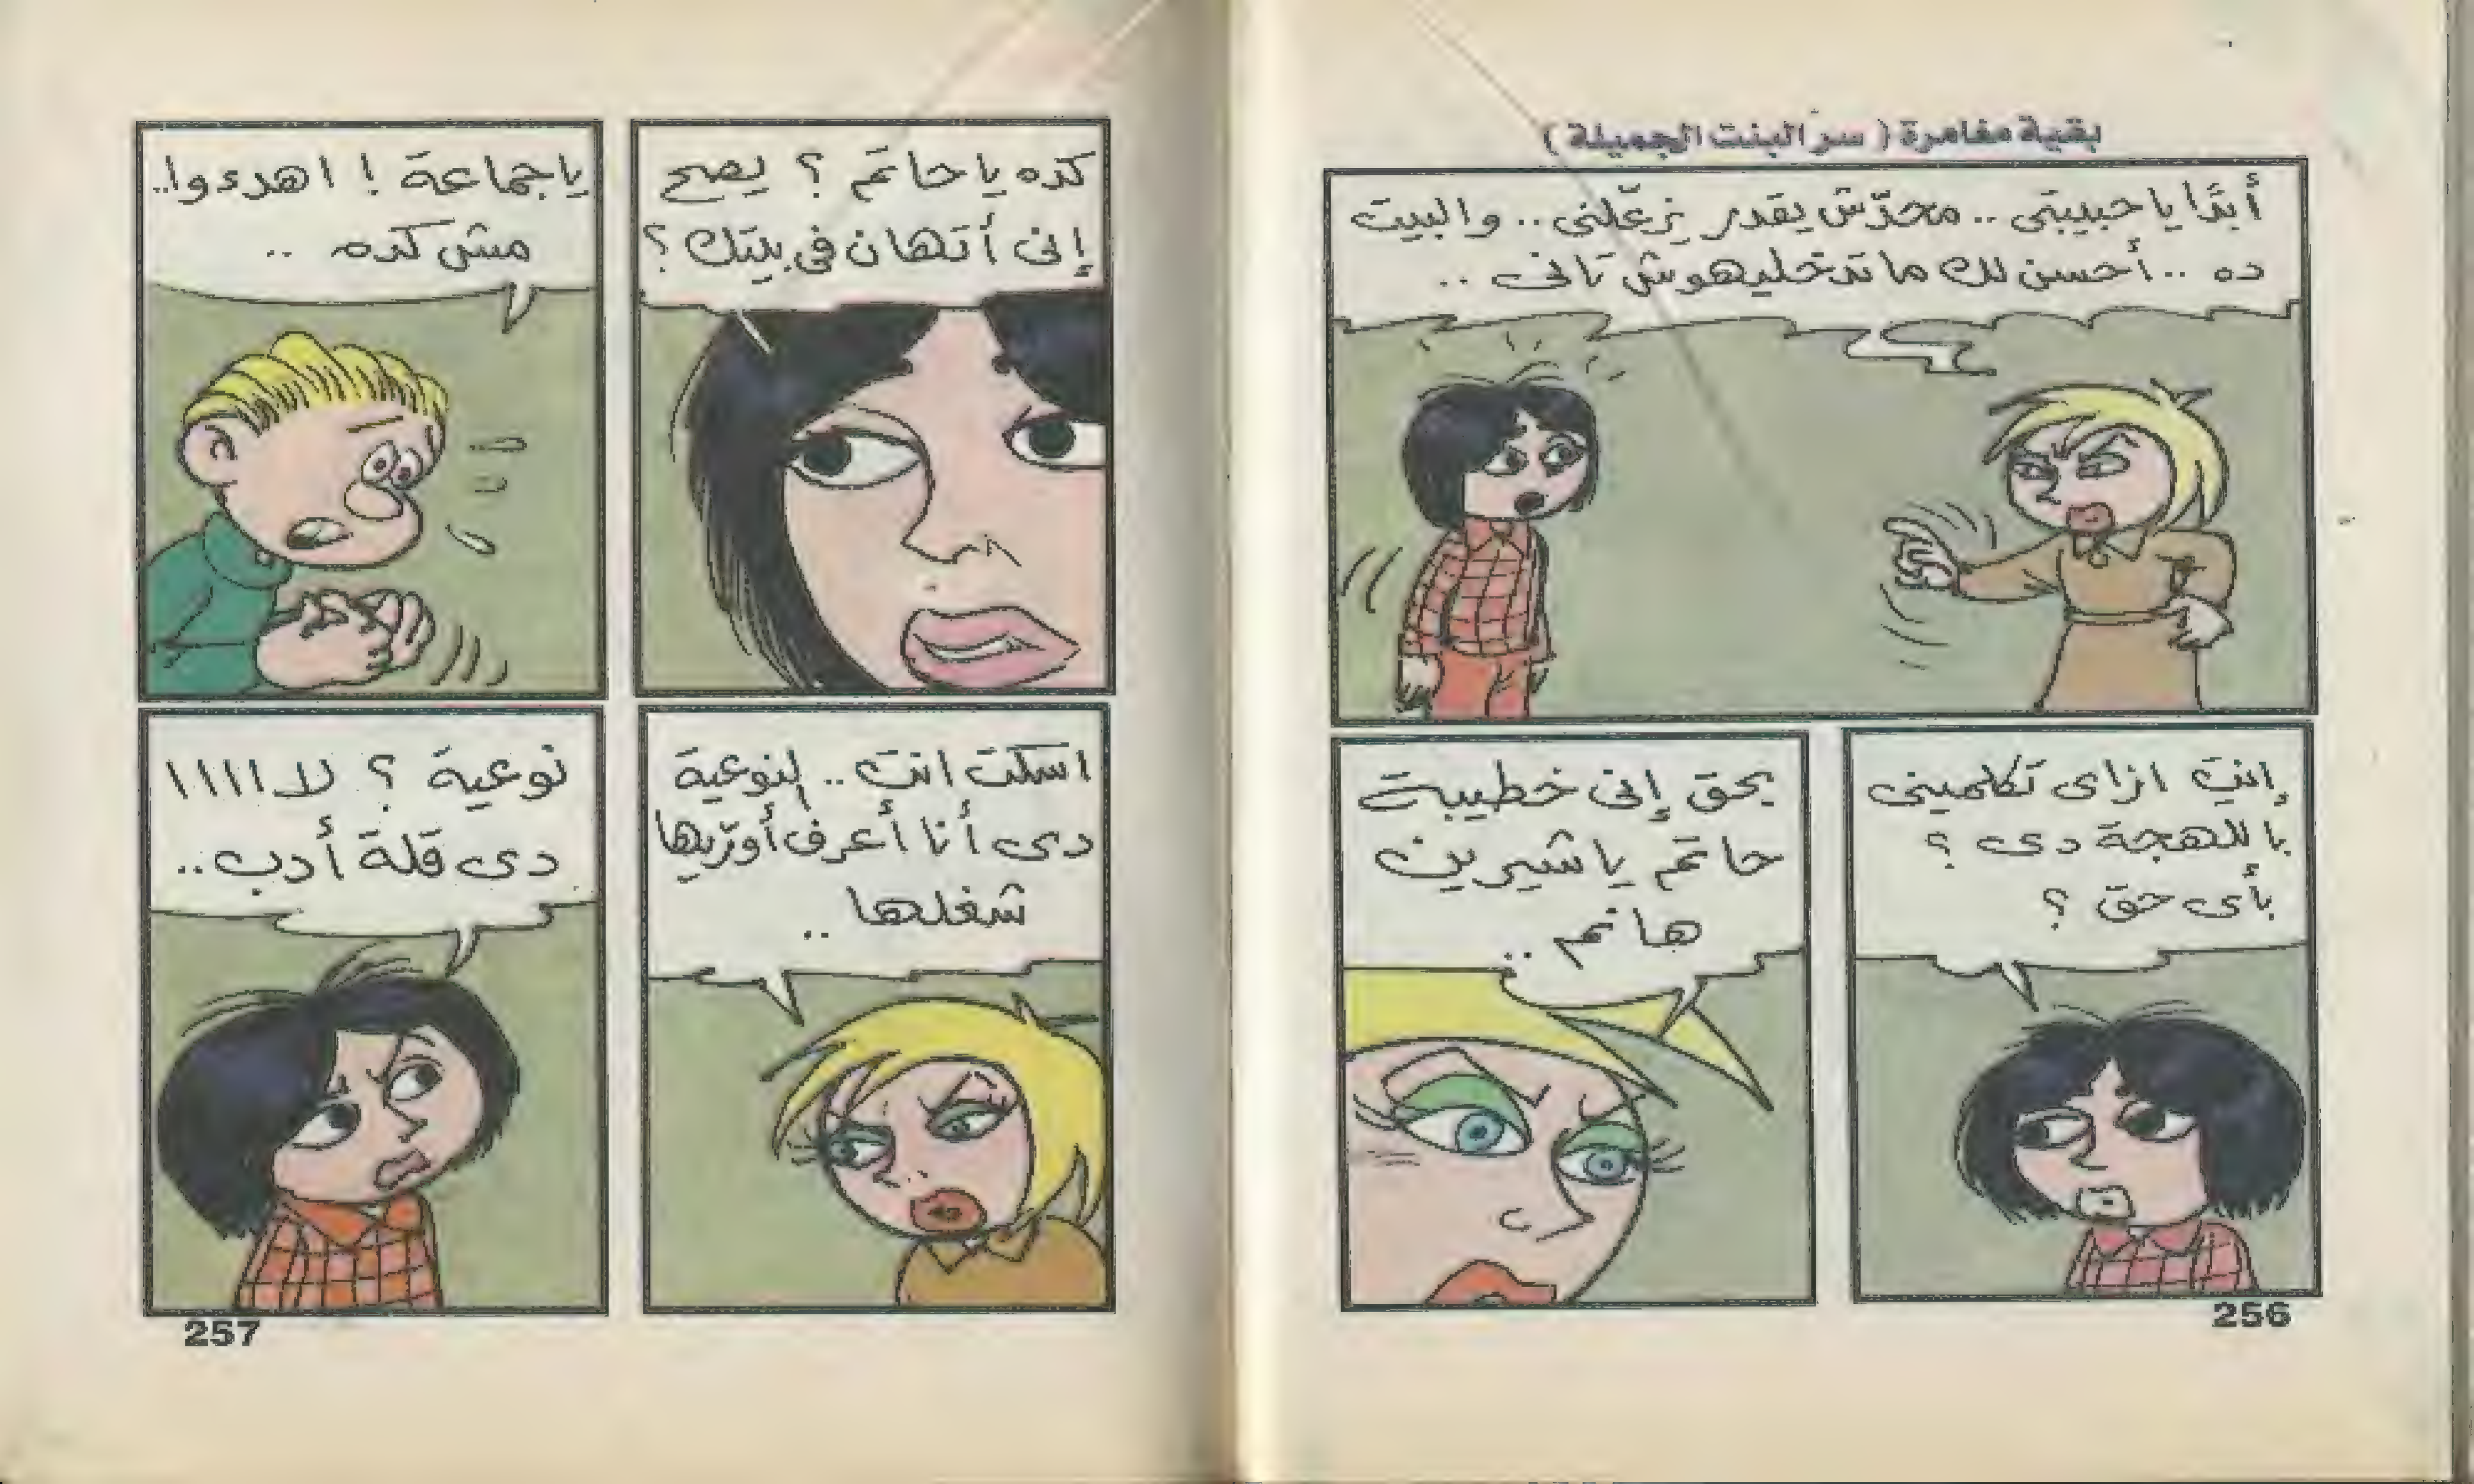 بقية مغامرة ( سر البنت الجميلة )
أبدًا يا حبيبتى .. محدّش يقدر يزعّلنى .. والبيت
ده .. أحسن لك ما تدخليهوش تانى ..
إنتِ ازاى تكلمينى
باللهجة دى ؟
بأى حق ؟
بحق إنى خطيبة
حاتم يا شيرين
هانم ..
256
كده يا حاتم ؟ يصح
إنى أتهان فى بيتك ؟
يا جماعة ! اهدءوا..
مش كده ..
اسكت انت .. النوعية
دى أنا أعرف أورّيها
شغلها ..
نوعية ؟ لا ا ا ا ا
دى قلة أدب ..
257